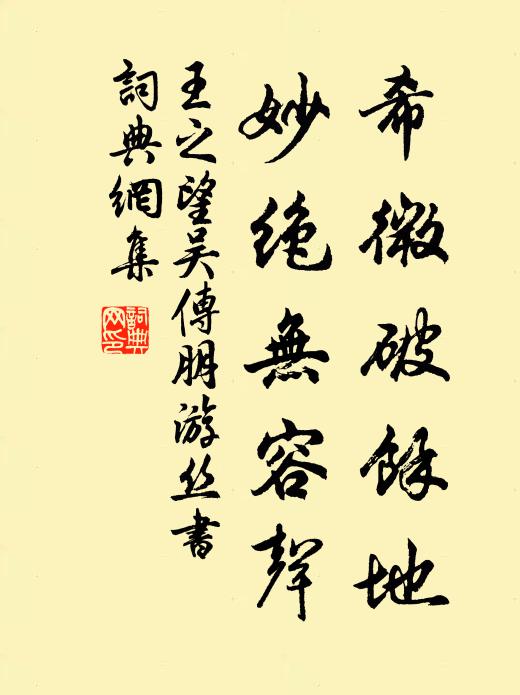 希微破餘地
妙絕無容聲
王之望吴傅朋游丝書
詞典網集
詞典网印